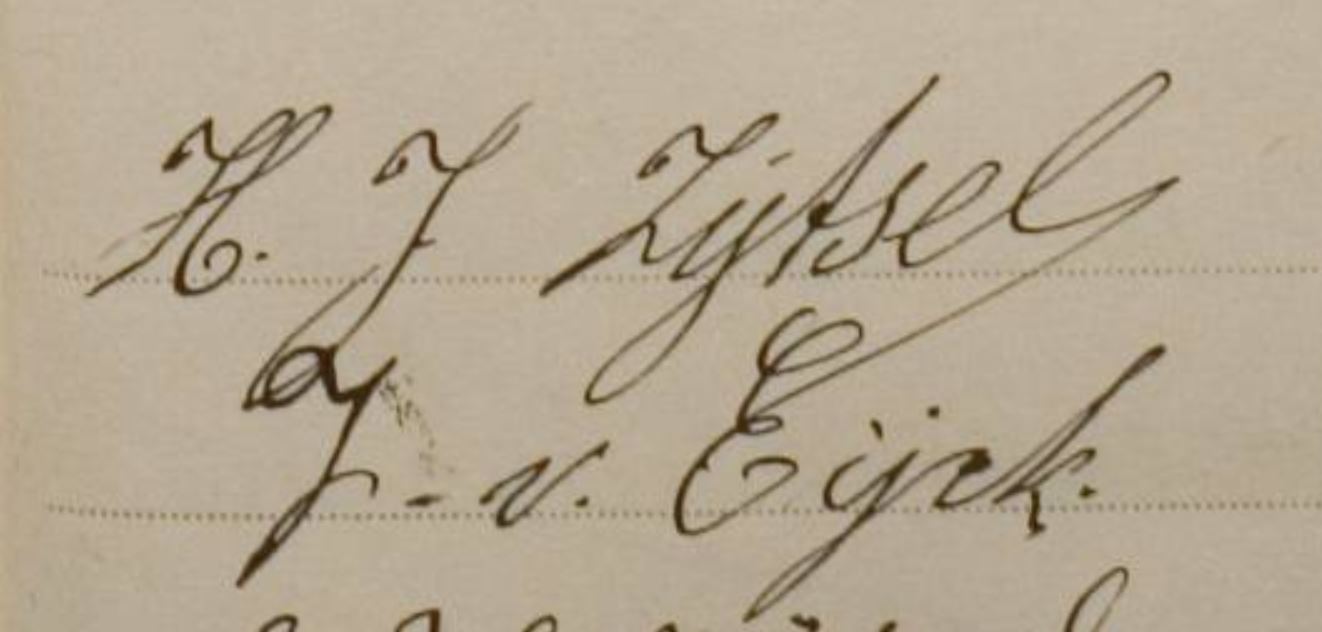 H. J Zijtsel
J - v. Eijck.